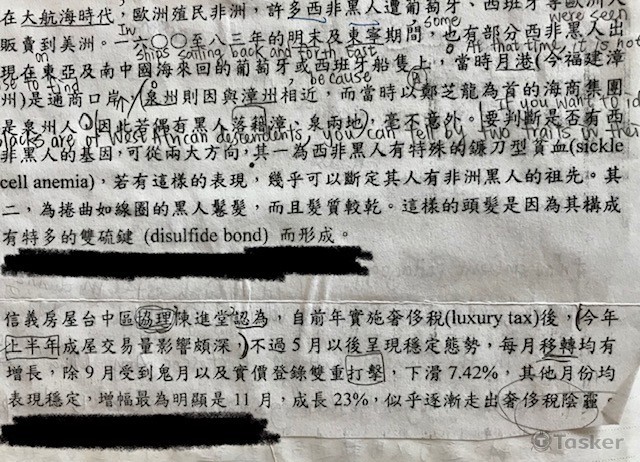 在大航海時代，歐洲殖民非洲，許多西非黑人遭葡萄牙、西班牙等歐洲人
were seen
some
販賣到美洲。一六〇〇至八三年的明末及東寧期間，也有部分西非黑人出
In
ships sailing back and forth east
At that time, it is not
現在東亞及南中國海來回的葡萄牙或西班牙船隻上，當時月港(今福建漳
on
because
州)是通商口岸，泉州則因與漳州相近，而當時以鄭芝龍為首的海商集團
If you want to id
是泉州人，因此若偶有黑人落籍漳、泉兩地，毫不意外。要判斷是否有西
blacks are of West African dependents, you can tell by two traits in the
非黑人的基因，可從兩大方向，其一為西非黑人有特殊的鐮刀型貧血(sickle
cell anemia)，若有這樣的表現，幾乎可以斷定其人有非洲黑人的祖先。其
二，為捲曲如線圈的黑人鬈髮，而且髮質較乾。這樣的頭髮是因為其構成
有特多的雙硫鍵 (disulfide bond) 而形成。
信義房屋台中區協理陳進堂認為，自前年實施奢侈稅(luxury tax)後，今年
上半年成屋交易量影響頗深，不過 5 月以後呈現穩定態勢，每月移轉均有
增長，除 9 月受到鬼月以及實價登錄雙重打擊，下滑 7.42%，其他月份均
表現穩定，增幅最為明顯是 11 月，成長 23%，似乎逐漸走出奢侈稅陰霾。
Tasker